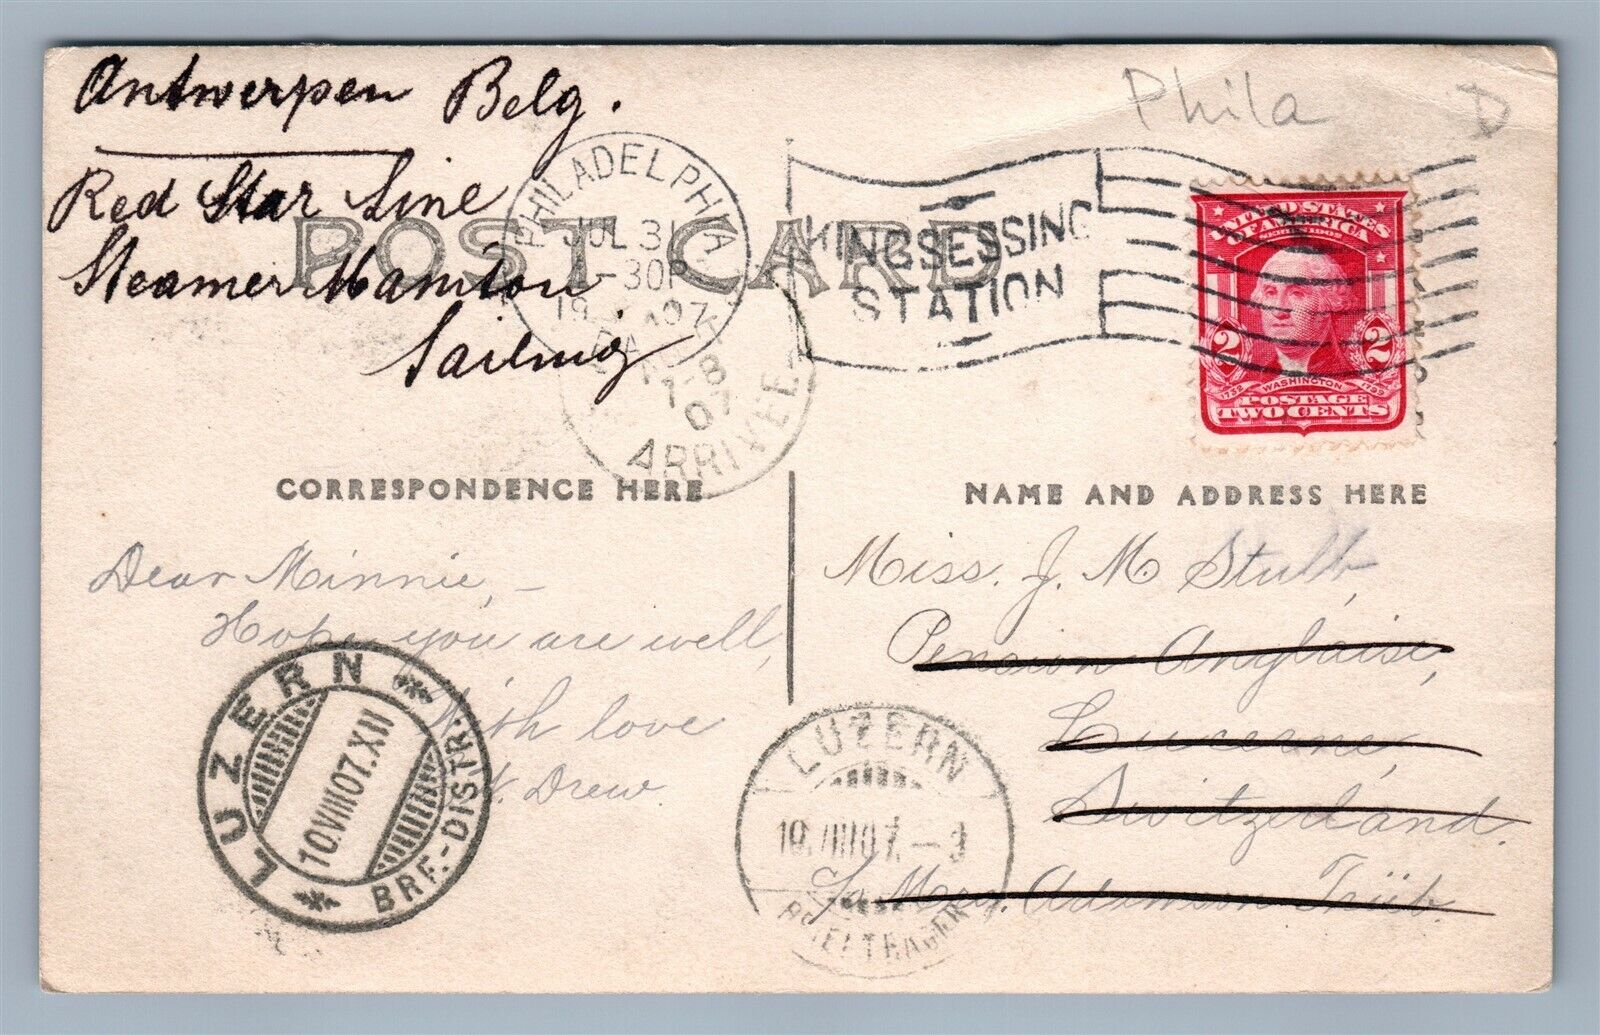 Antwerpen Belg.
Red Star Line
Steamer Manitou
Sailing
Phila
D
POST CARD
PHILADELPHIA
JUL 31
-30P
1907
PA.
KINGSESSING
STATION
UNITED STATES
OF AMERICA
SERIES 1902
2 2
1732 WASHINGTON 1799
POSTAGE
TWO CENTS
1-8
07
ARRIVÉE
CORRESPONDENCE HERE
NAME AND ADDRESS HERE
Dear Minnie, -
Hope you are well,
With love
K. Drew.
Miss. J. M. Stubb,
Pension Anglaise,
Lucerne,
Switzerland.
c/o Mrs. Adamson Trüb.
LUZERN
10.VIII 07.XII
BRF.-DISTR.
LUZERN
10.VIII 07.-9
BRIEFTRÄGER